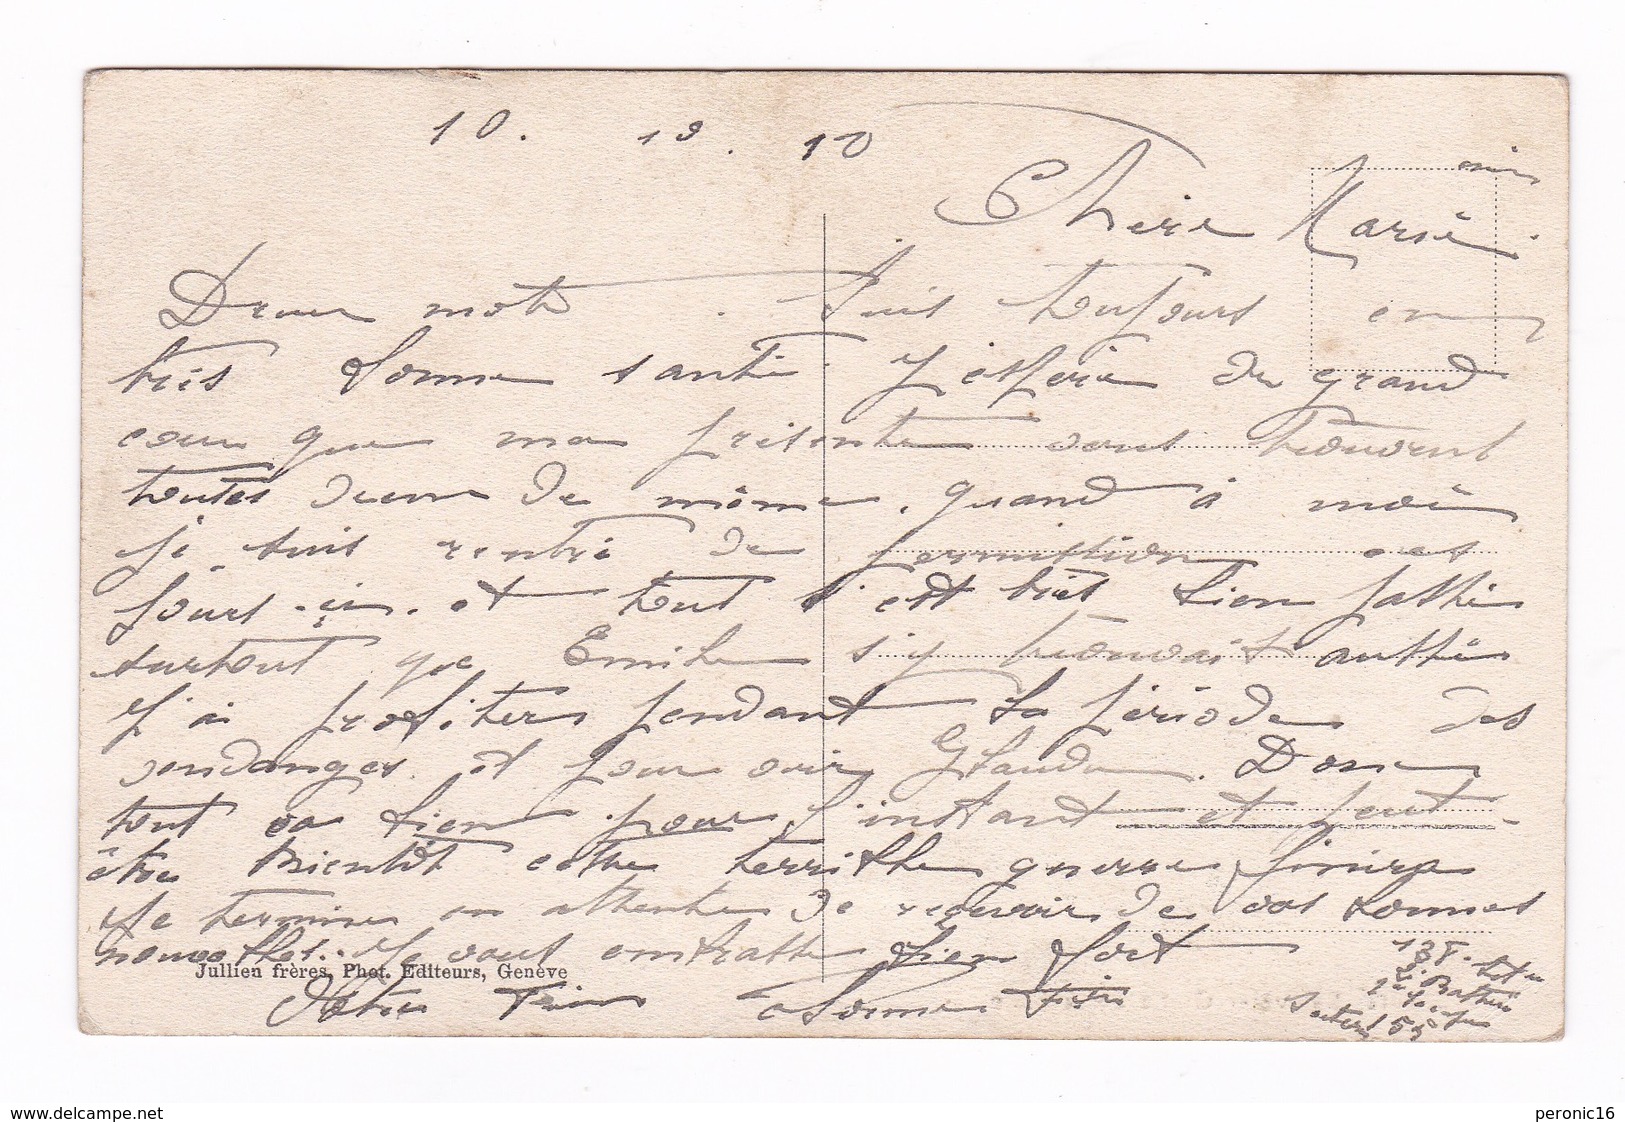 10. 10. 10
Chère Marie
Deux mots. Suis toujours en
très bonne santé. J'espère de grand
cœur que ma présente vous trouvent
toutes deux de même. quand à moi
je suis rentré de permission ces
jours-ci. et tout s'est très bien passé
surtout que Emile s'y trouvait aussi
J'ai profiter pendant la période des
vendanges et pour voir Glaudu. Donc
tout va bien pour l'instant et peut-
être Bientôt cette terrible guerre finira
Je termine en attente de recevoir de vos bonnes
nouvelles. Je vous embrasse bien fort
Jullien frères, Phot. Editeurs, Genève
Votre
135
Secteur 55
www.delcampe.net
peronic16